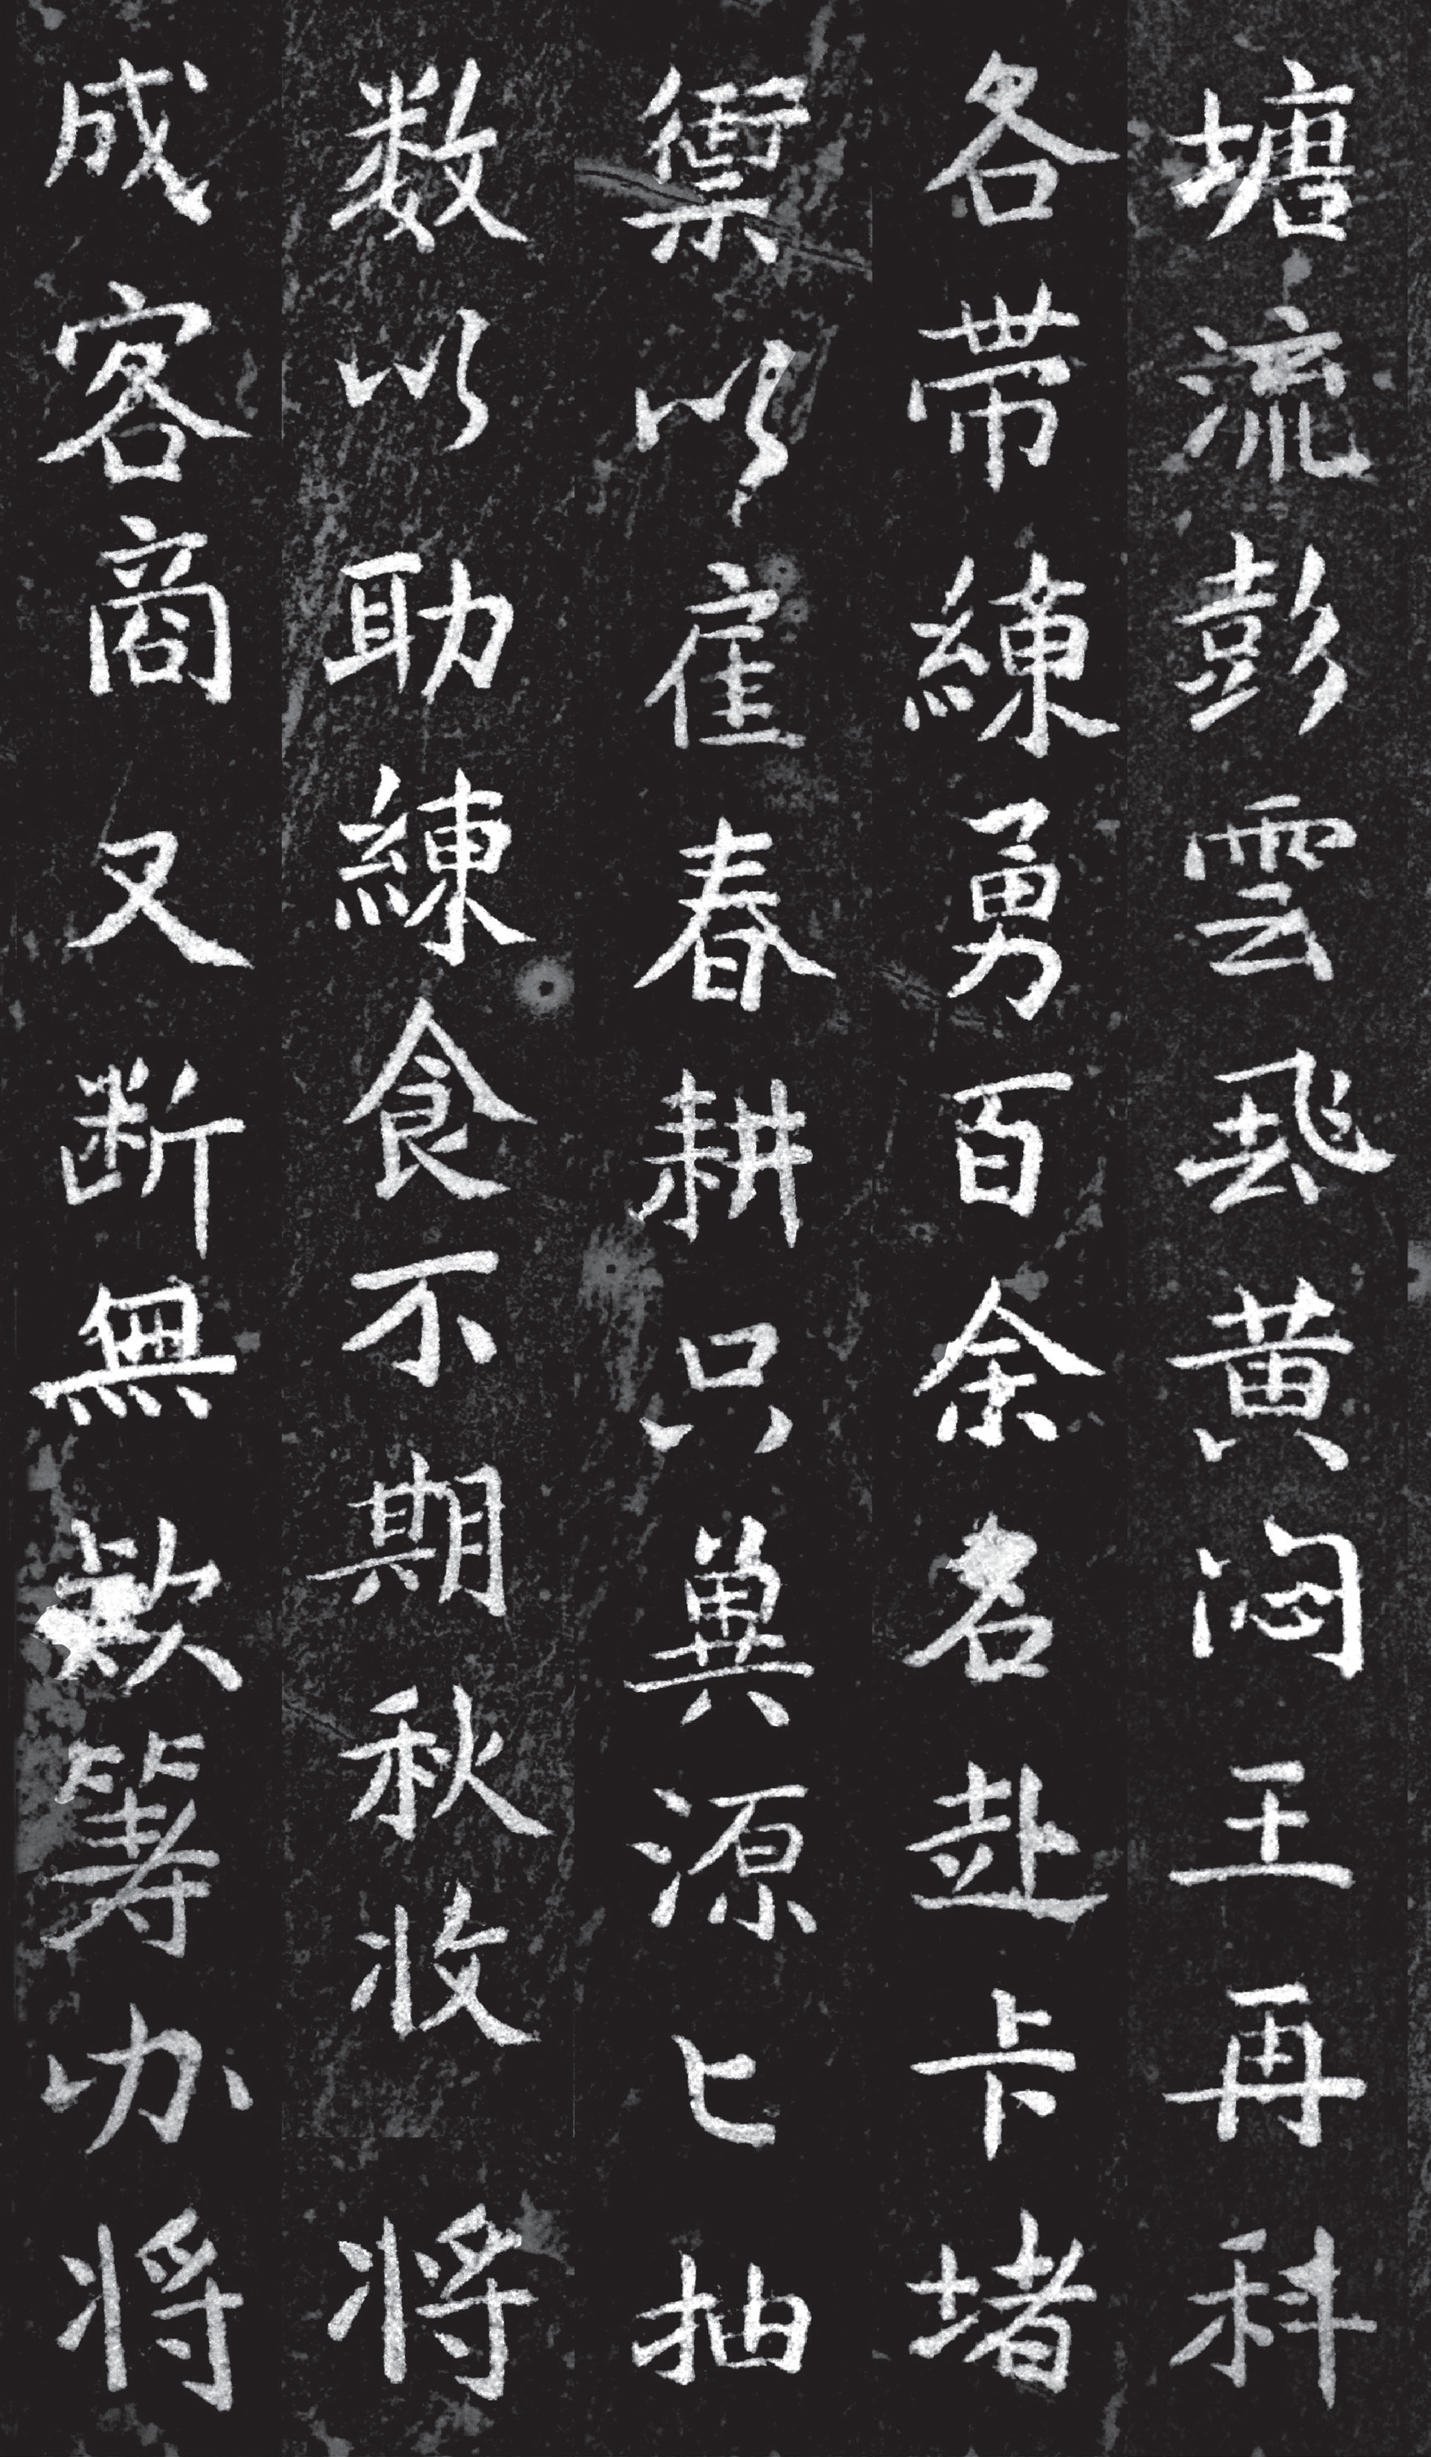 塘流彭雲飛黄闷王再科
各带練勇百余名赴卡堵
禦以隺春耕只兾源匕抽
数以助練食不期秋收将
成客商又断無欵筹办将